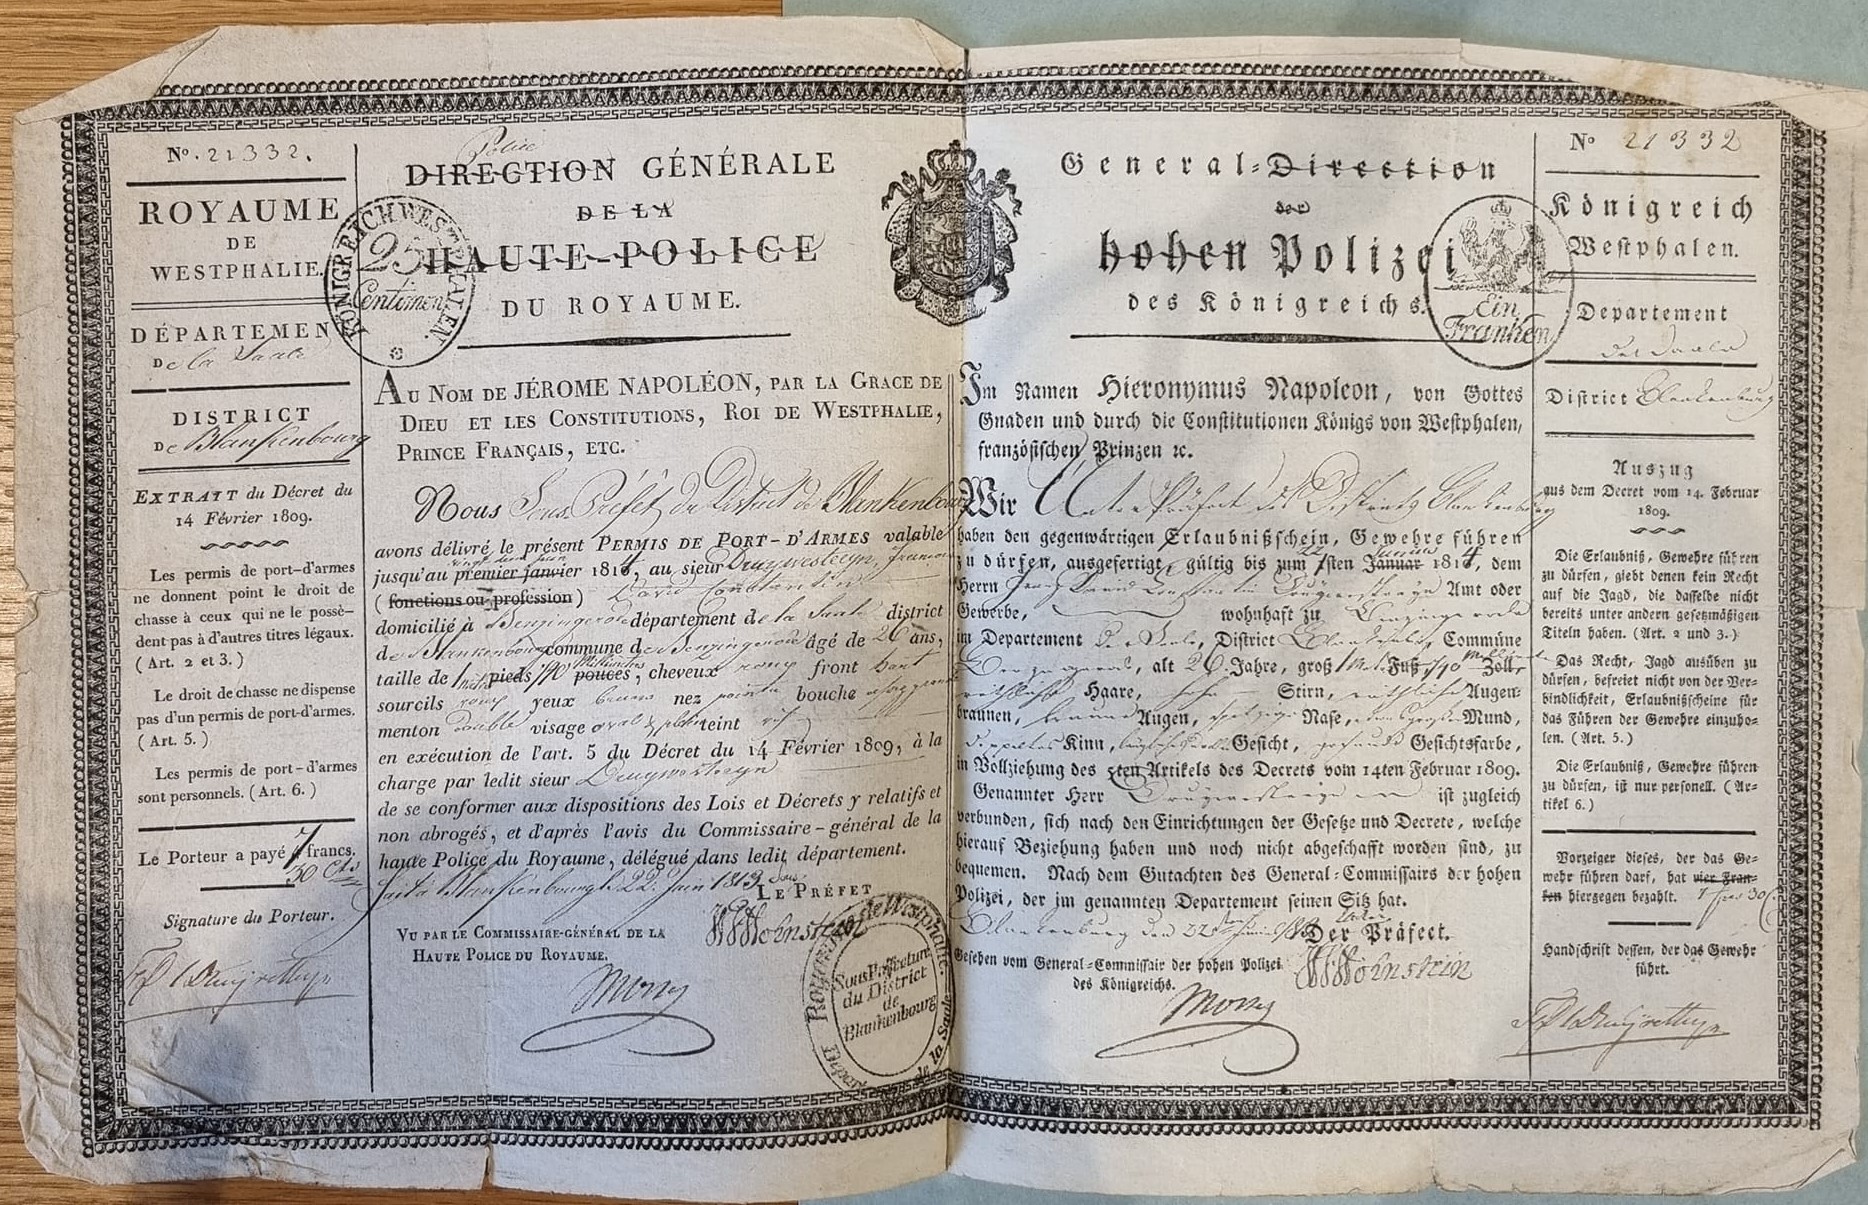 Nº. 21332.
ROYAUME
DE
WESTPHALIE.
DÉPARTEMEN
De la Saale
DISTRICT
De Blankenbourg
EXTRAIT du Décret du
14 Février 1809.
Les permis de port-d'armes
ne donnent point le droit de
chasse à ceux qui ne le possè-
dent pas à d'autres titres légaux.
( Art. 2 et 3. )
Le droit de chasse ne dispense
pas d'un permis de port-d'armes.
( Art. 5. )
Les permis de port-d'armes
sont personnels. ( Art. 6. )
Le Porteur a payé 7 francs.
30 Cts
Signature du Porteur.
KÖNIGREICH WESTPHALEN.
25
Centimen
Police
DIRECTION GÉNÉRALE
DE LA
HAUTE-POLICE
DU ROYAUME.
AU NOM DE JÉROME NAPOLÉON, PAR LA GRACE DE
DIEU ET LES CONSTITUTIONS, ROI DE WESTPHALIE,
PRINCE FRANÇAIS, ETC.
Nous Sous Préfet du District de Blankenbourg
avons délivré le présent PERMIS DE PORT-D'ARMES valable
jusqu'au premier janvier 181, au sieur
( fonctions ou profession ) David Constantin
domicilié à Benzingerode département de la Saale district
de Blankenbourg commune de Benzingerode âgé de 26 ans,
taille de 1 pieds pouces, cheveux roux front haut
sourcils roux yeux bruns nez pointu bouche
menton double visage oval & plein teint
en exécution de l'art. 5 du Décret du 14 Février 1809, à la
charge par ledit sieur
de se conformer aux dispositions des Lois et Décrets y relatifs et
non abrogés, et d'après l'avis du Commissaire-général de la
haute Police du Royaume, délégué dans ledit département.
Fait à Blankenbourg le 22. Juin 1813
Sous
LE PRÉFET
VU PAR LE COMMISSAIRE-GÉNÉRAL DE LA
HAUTE POLICE DU ROYAUME.
Royaume de Westphalie.
Sous Préfecture
du District
de
Blankenbourg
Départ. de la Saale
General-Direction
der
hohen Polizei
des Königreichs.
Ein
Franken
Im Namen Hieronymus Napoleon, von Gottes
Gnaden und durch die Constitutionen Königs von Westphalen,
französischen Prinzen ꝛc.
Wir Unter Präfect des Districts Blankenburg
haben den gegenwärtigen Erlaubnißschein, Gewehre führen
zu dürfen, ausgefertigt, gültig bis zum 1sten Januar 1814, dem
Herrn Amt oder
Gewerbe, wohnhaft zu Benzingerode
im Departement der Saale, District Blankenburg, Commüne
Benzingerode, alt 26 Jahre, groß 1 Fuß Zoll,
röthliche Haare, hohe Stirn, röthliche Augen-
braunen, braune Augen, spitzige Nase, Mund,
doppeltes Kinn, Gesicht, gesunde Gesichtsfarbe,
in Vollziehung des 5ten Artikels des Decrets vom 14ten Februar 1809.
Genannter Herr ist zugleich
verbunden, sich nach den Einrichtungen der Gesetze und Decrete, welche
hierauf Beziehung haben und noch nicht abgeschafft worden sind, zu
bequemen. Nach dem Gutachten des General-Commissairs der hohen
Polizei, der im genannten Departement seinen Sitz hat.
Blankenburg den 22 Juni 1813
Unter
Der Präfect.
Gesehen vom General-Commissair der hohen Polizei
des Königreichs.
Nº 21332
Königreich
Westphalen.
Departement
der Saale
District Blankenburg
Auszug
aus dem Decret vom 14. Februar
1809.
Die Erlaubniß, Gewehre führen
zu dürfen, giebt denen kein Recht
auf die Jagd, die dasselbe nicht
bereits unter andern gesetzmäßigen
Titeln haben. (Art. 2 und 3.)
Das Recht, Jagd ausüben zu
dürfen, befreiet nicht von der Ver-
bindlichkeit, Erlaubnißscheine für
das Führen der Gewehre einzuho-
len. (Art. 5.)
Die Erlaubniß, Gewehre führen
zu dürfen, ist nur personell. (Ar-
tikel 6.)
Vorzeiger dieses, der das Ge-
wehr führen darf, hat vier Fran-
ken hiergegen bezahlt. 7 frcs 30 C.
Handschrift dessen, der das Gewehr
führt.